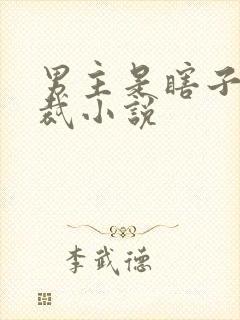 男主是瞎子
裁小说
李武德